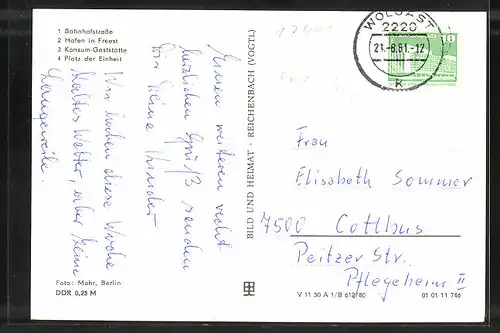 1 Bahnhofstraße
2 Hafen in Freest
3 Konsum-Gaststätte
4 Platz der Einheit
Einen weiteren recht
herzlichen Gruß senden
Dir Deine Kinder
Wir haben diese Woche
kaltes Wetter, aber keine
Langeweile.
Foto: Mohr, Berlin
DDR 0,25 M
BILD UND HEIMAT · REICHENBACH (VOGTL.)
WOLGAST
2220
21.-8.81.-12
K
10
Frau
Elisabeth Sommer
7500 Cottbus
Peitzer Str.
Pflegeheim II
V 11 30 A 1/B 612/80
01 01 11 746